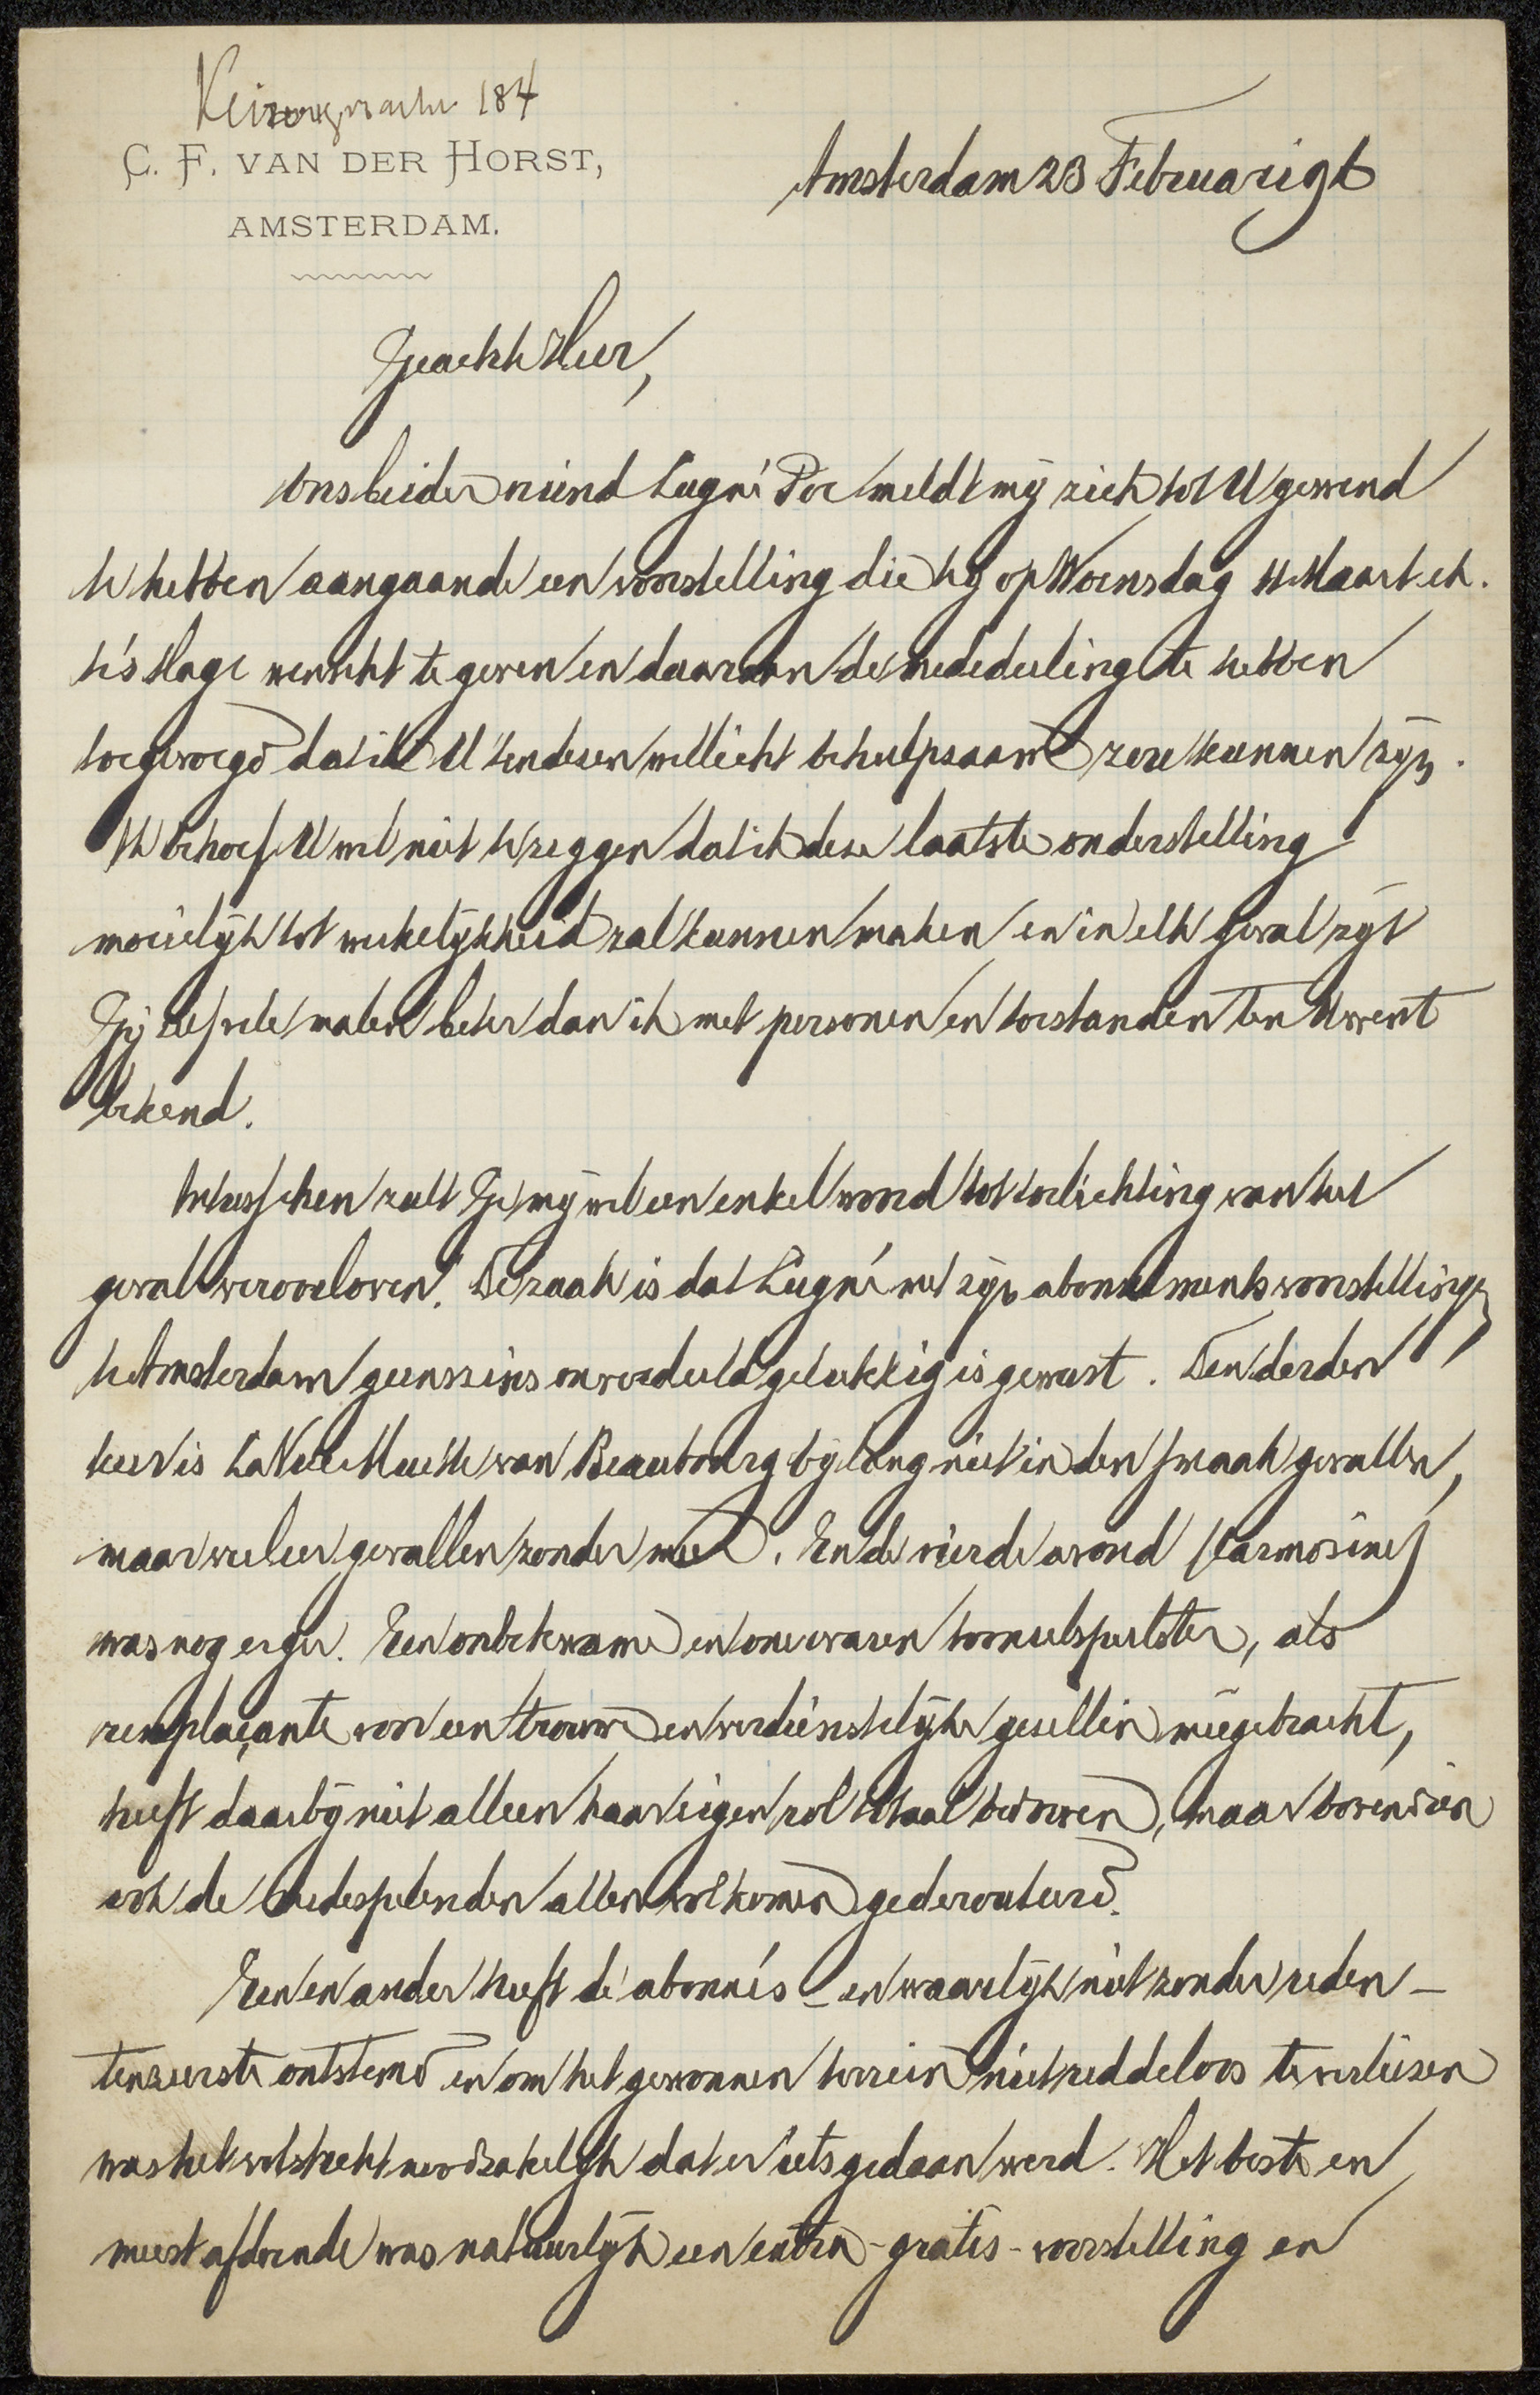 Keizersgracht 184
C. F. VAN DER HORST,
AMSTERDAM.
Amsterdam 23 Februari 96
Geachte Heer,
Ons beider vriend Lugné Poe meldt mij zich tot U gewend
te hebben aangaande een voorstelling die hij op Woensdag 11 Maart e.k.
te 's Hage wenscht te geven en daaraan de mededeeling te hebben
toegevoegd dat ik U tendezen wellicht behulpzaam zou kunnen zijn.
Ik behoef U wel niet te zeggen dat ik deze laatste onderstelling
moeielijk tot werkelijkheid zal kunnen maken en in elk geval zijt
Gij zelf vele malen beter dan ik met personen en toestanden ten Uwent
bekend.
Intusschen zult Ge mij wel een enkel woord tot toelichting van het
geval veroorloven. De zaak is dat Lugné met zijn abonnementsvoorstellingen
te Amsterdam geenszins onverdeeld gelukkig is geweest. Den derden
keer is La Vie Muette van Beaubourg bijlang niet in den smaak gevallen,
maar veeleer gevallen zonder meer. En de vierde avond (Carmosine)
was nog erger. Een onbekwame en onervaren tooneelspeelster, als
remplaçante voor een trouwe en verdienstelijke gezellin meegebracht,
heeft daarbij niet alleen haar eigen rol totaal bedorven, maar bovendien
ook de medespelenden allen volkomen gederouteerd.
Een en ander heeft de abonnés – en waarlijk niet zonder reden –
tenzeerste ontstemd en om het gewonnen terrein niet reddeloos te verliezen
was het volstrekt noodzakelijk dat er iets gedaan werd. Het beste en
meest afdoende was natuurlijk een extra-gratis-voorstelling en